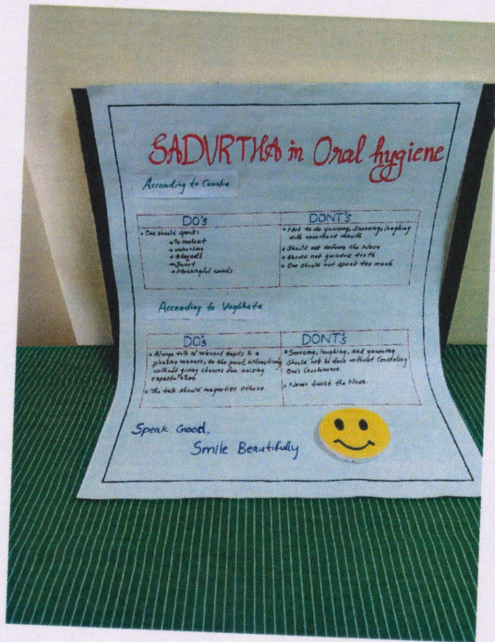 SADVRTHA in Oral hygiene
According to Caraka
DO's
• One should speak:
DONT's
• Not to do yawning, Sneezing, laughing
with uncovered mouth
• Should not deform the Nose
• Should not grinded teeth
• One should not speak too much
→ Meaningful words
According to Vagbhata
DO's
• Always talk of relevent topics in a
pleasing manner, to the point, attractively
without giving chances for raising
• The talk should magnetise others.
DONT's
• Sneezing, laughing, and yawning
should not be done without Covering
One's Countenance
• Never twist the Nose.
Speak Good,
Smile Beautifully